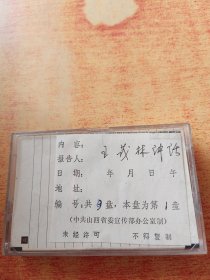 内容： 王茂林讲话
报告人：
日期： 年 月 日 午
地址：
编号：共3盘，本盘为第1盘
（中共山西省委宣传部办公室制）
未经许可 不得复制